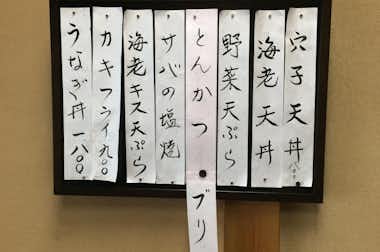 穴子天丼
海老天丼
野菜天ぷら
とんかつ
ブリ
サバの塩焼
海老キス天ぷら
カキフライ九〇〇
うなぎ丼一八〇〇